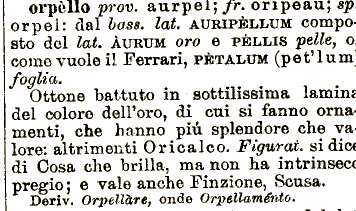 orpèllo prov. aurpel; fr. oripeau; sp.
orpel: dal bass. lat. AURIPÈLLUM compo-
sto del lat. ÀURUM oro e PÈLLIS pelle, o,
come vuole il Ferrari, PÈTALUM (pet'lum)
foglia.
Ottone battuto in sottilissima lamina
del colore dell'oro, di cui si fanno orna-
menti, che hanno più splendore che va-
lore: altrimenti Oricalco. Figurat. si dice
di Cosa che brilla, ma non ha intrinseco
pregio; e vale anche Finzione, Scusa.
Deriv. Orpellàre, onde Orpellaménto.